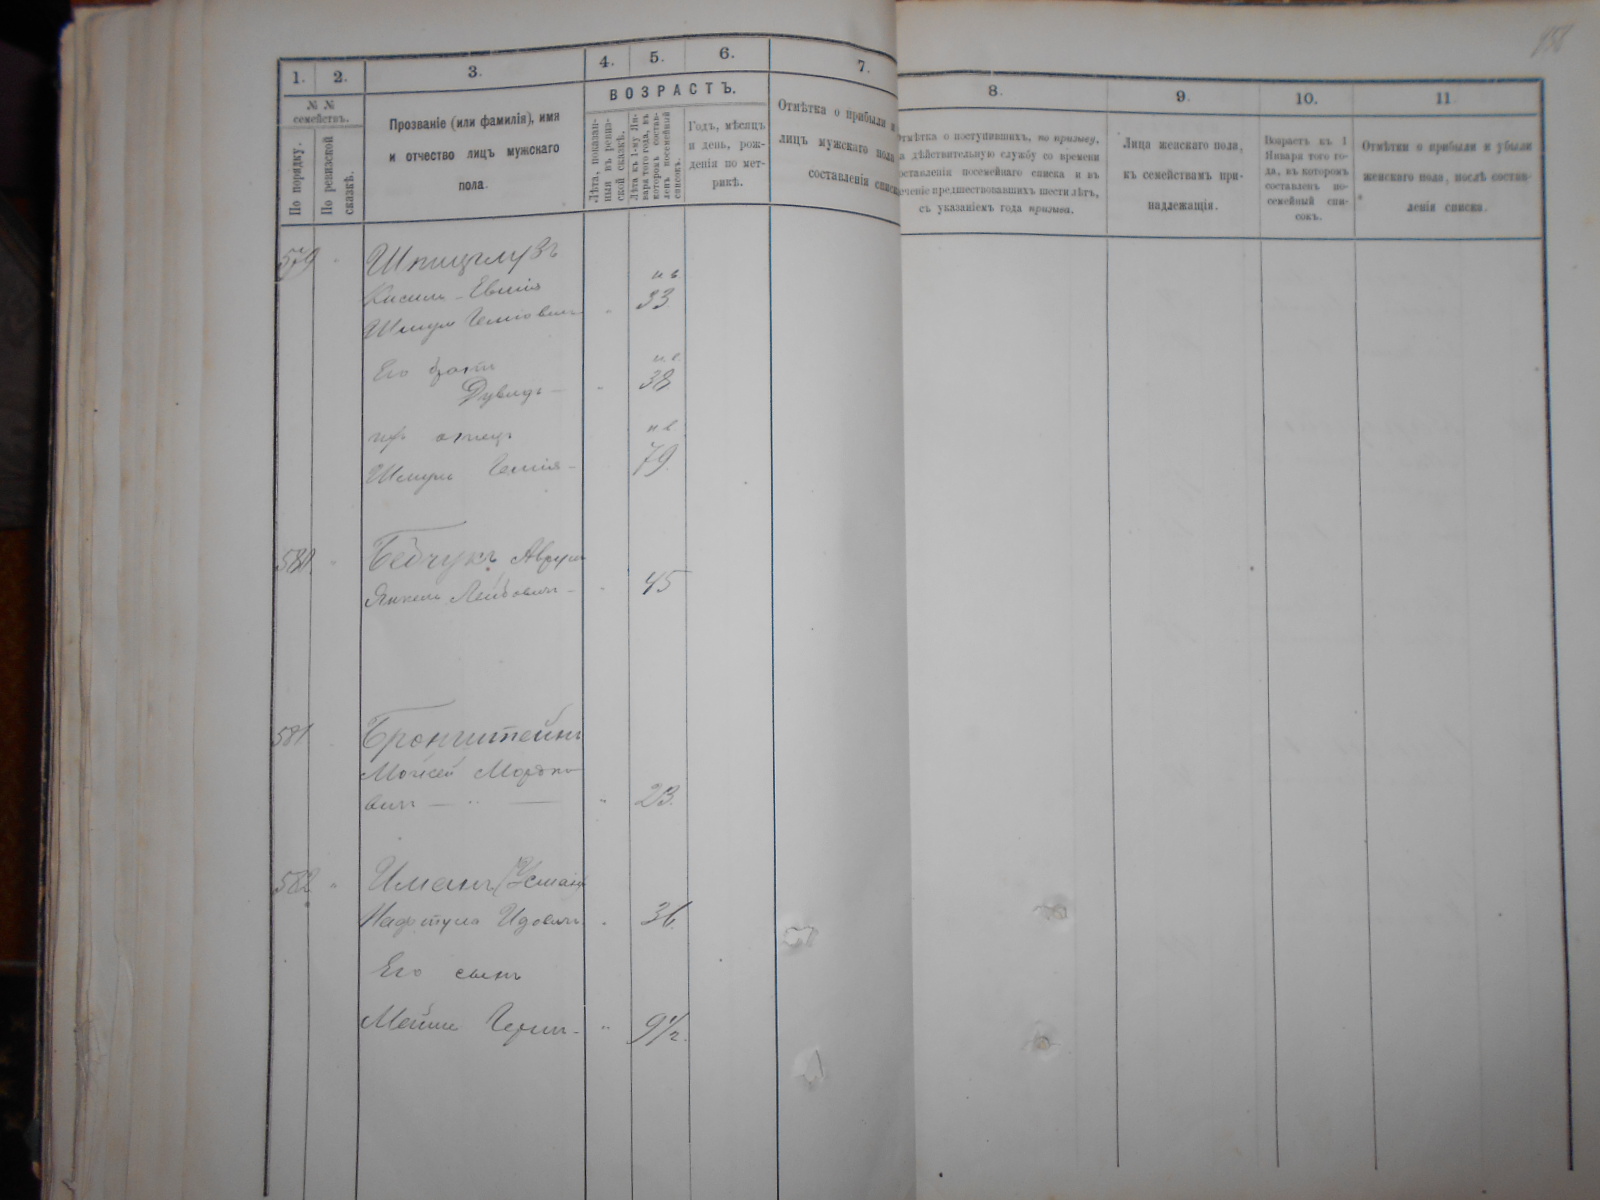 1. 2. 3. 4. 5. 6. 7. 8. 9. 10. 11
№ №
семействъ.
По порядку.
По ревизской
сказкѣ.
Прозваніе (или фамилія), имя
и отчество лицъ мужскаго
пола.
ВОЗРАСТЪ.
Лѣта, показан-
ныя въ ревиз-
ской сказкѣ.
Лѣта къ 1-му Ян-
варя того года, въ
которомъ состав-
ленъ посемейный
списокъ.
Годъ, мѣсяцъ
и день, рож-
денія по мет-
рикѣ.
Отмѣтка о прибыли и
лицъ мужскаго пола
составленія списк
тмѣтка о поступившихъ, по призыву,
а дѣйствительную службу со времени
оставленія посемейнаго списка и въ
еченіе предшествовавшихъ шести лѣтъ,
съ указаніемъ года призыва.
Лица женскаго пола,
къ семействамъ при-
надлежащія.
Возрастъ къ 1
Января того го-
да, въ которомъ
составленъ по-
семейный спи-
сокъ.
Отмѣтки о прибыли и убыли
женскаго пола, послѣ состав-
ленія списка.
579
33
Его братъ
Дувидъ 38
отецъ
79
580 Аврумъ
Янкель Лейбовичъ 45
581 Бронштейнъ
Мойсей Мордко-
вичъ 23
582
Нафтула Идовичъ 36
Его сынъ
9 1/2